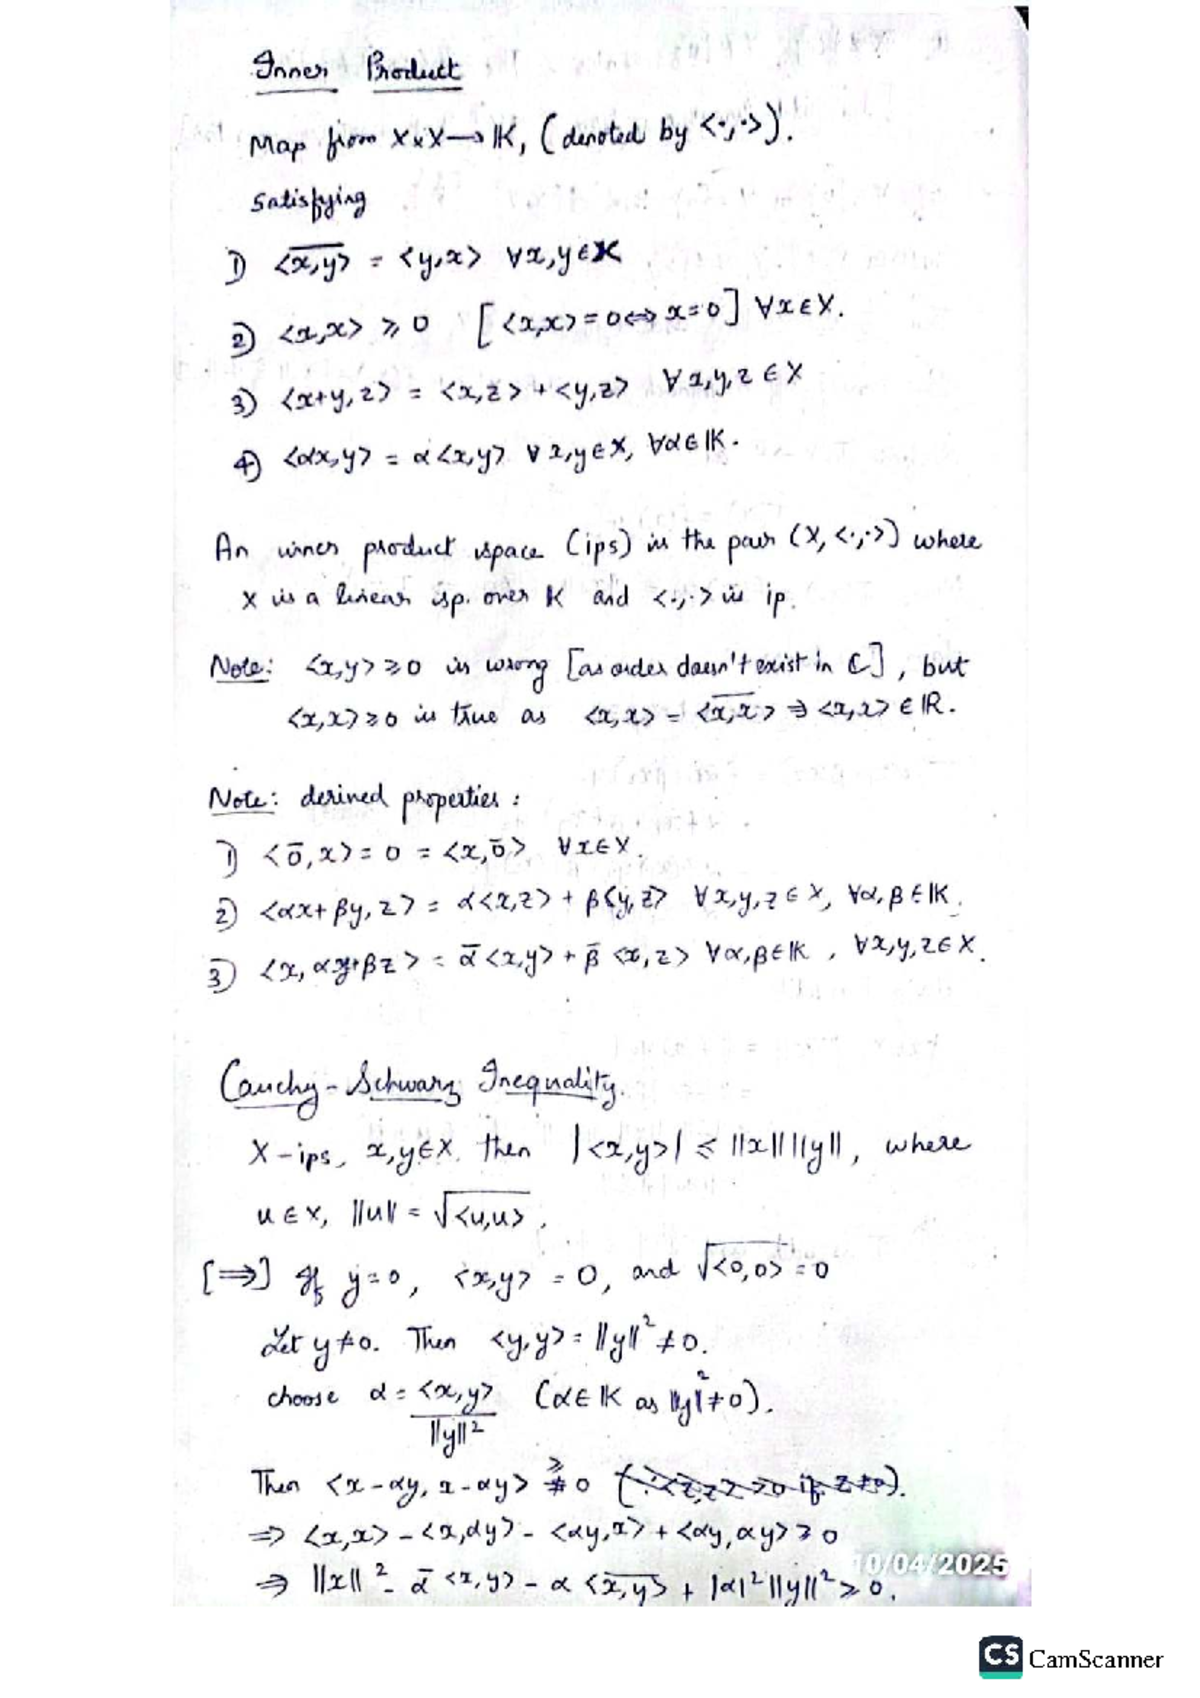 Inner Product
Map from X×X→𝕂, (denoted by <·,·>).
Satisfying
1) <x,y>̅ = <y,x> ∀x,y∈X
2) <x,x> ≥ 0 [<x,x>=0⇔x=0] ∀x∈X.
3) <x+y,z> = <x,z>+<y,z> ∀x,y,z∈X
4) <αx,y> = α<x,y> ∀x,y∈X, ∀α∈𝕂.
An inner product space (ips) is the pair (X,<·,·>) where
X is a linear sp. over K and <·,·> is ip.
Note: <x,y>≥0 is wrong [as order doesn't exist in ℂ], but
<x,x>≥0 is true as <x,x> = <x,x>̅ ⇒ <x,x>∈ℝ.
Note: derived properties:
1) <0̄,x>=0=<x,0̄> ∀x∈X.
2) <αx+βy,z> = α<x,z>+β<y,z> ∀x,y,z∈X, ∀α,β∈𝕂.
3) <x,αy+βz> = ᾱ<x,y>+β̄<x,z> ∀α,β∈𝕂, ∀x,y,z∈X.
Cauchy-Schwarz Inequality.
X-ips, x,y∈X. then |<x,y>| ≤ ||x|| ||y||, where
u∈X, ||u|| = √<u,u>.
[⇒] If y=0, <x,y> = 0, and √<0,0> = 0
Let y≠0. Then <y,y> = ||y||² ≠ 0.
choose α = <x,y>/||y||² (α∈𝕂 as ||y||²≠0).
Then <x-αy, x-αy> ≥ 0 (∵ <z,z> >0 if z≠0).
⇒ <x,x> - <x,αy> - <αy,x> + <αy,αy> ≥ 0
⇒ ||x||² - ᾱ<x,y> - α<x,y>̅ + |α|²||y||² ≥ 0.
10/04/2025
CS CamScanner